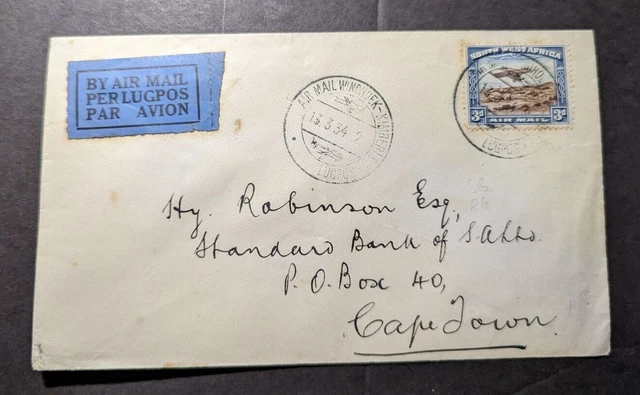 BY AIR MAIL
PER LUGPOS
PAR AVION
AIR MAIL WINDHOEK-KIMBERLEY
13.3.34
LUGPOS
SOUTH WEST AFRICA
3d 3d
AIR MAIL
LUGPOS
Hy. Robinson Esq,
Standard Bank of S.A. Ltd.
P.O. Box 40,
Cape Town.